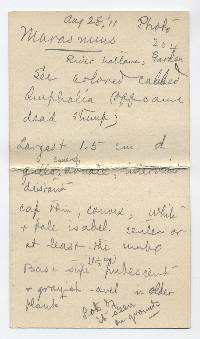 Aug 28, '11 Photo
Marasmius 204
River hollow, Garden
See colored called
Omphalia (Offcame
dead stump;
Largest 1.5 cm d
gills, arcuate,
distant
cap thin, convex, white
+ pale isabel. center or
at least the umbo
Base stipe pubescent
+ grayish - over in older
plants
on ground